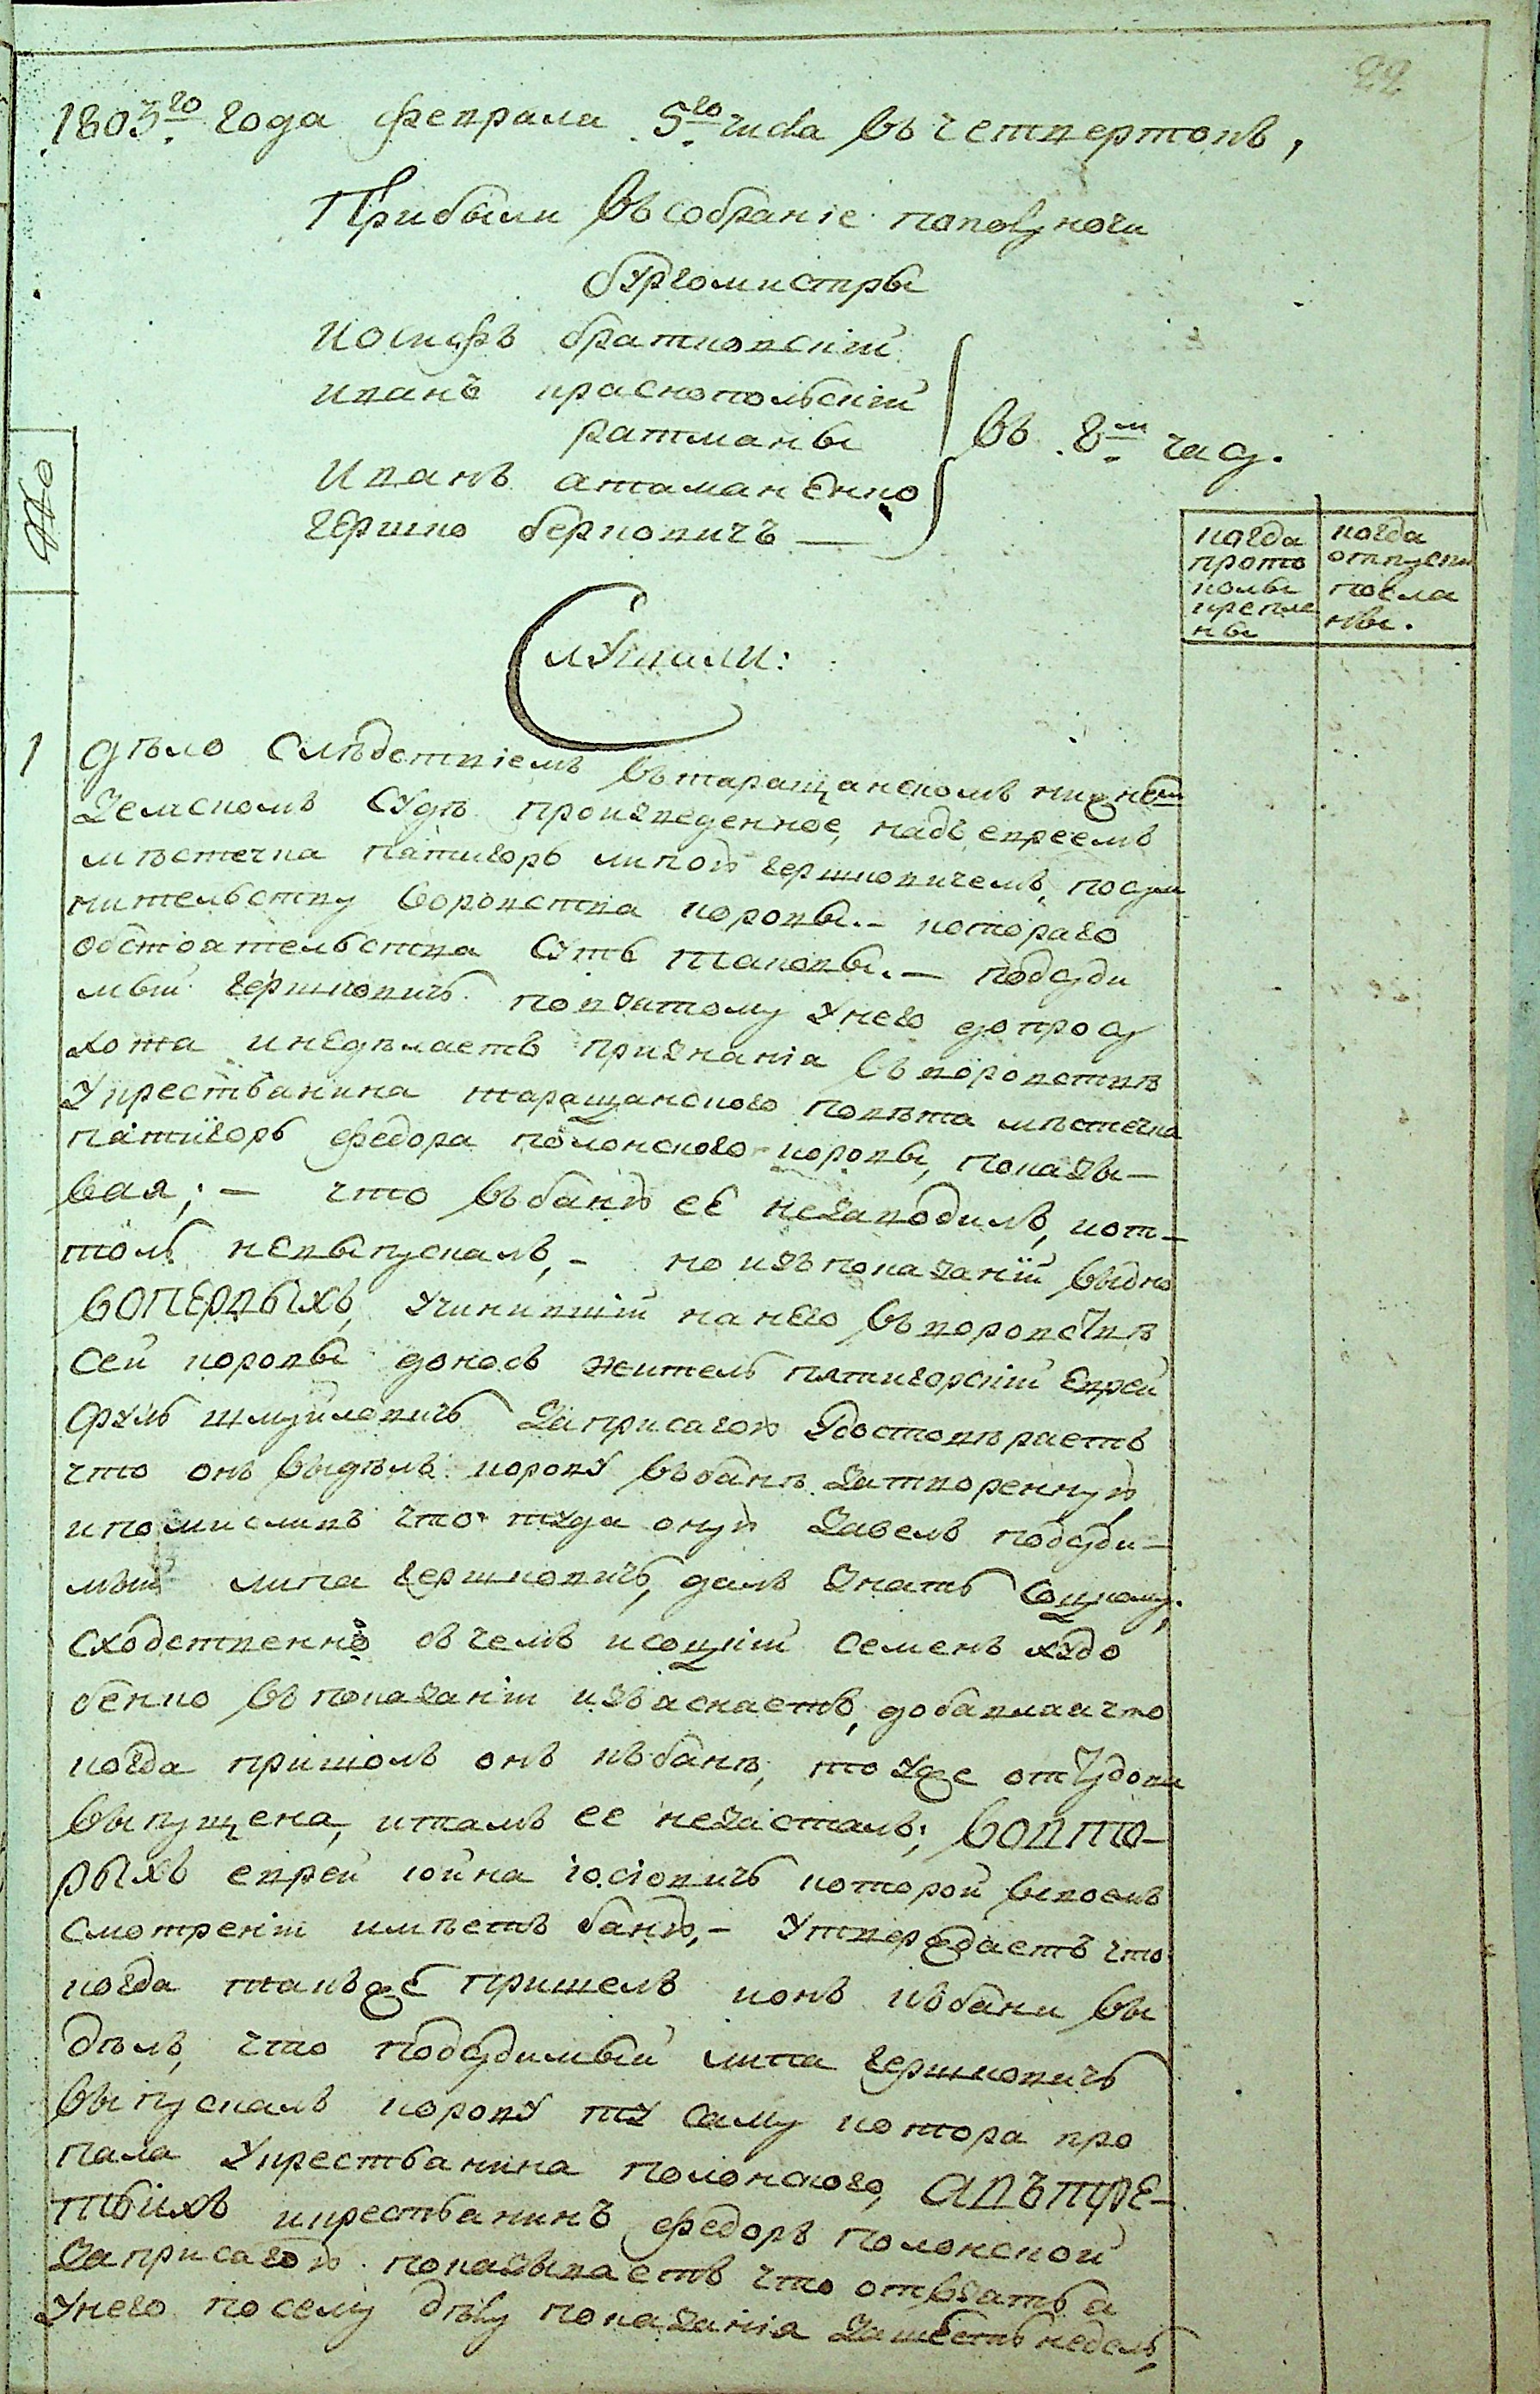 22
1803го года февраля 5го числа въ четвертокъ,
Прибыли въ собраніе пополуночи
бургомистры
Иосифъ братковскій
Иванъ краснопольскій
ратманы
Иванъ атаманенко
гершко берковичъ —
въ 8м часу.
когда прото колы крепле ны
когда отпуски посла ны.
Слушали:
1 дѣло слѣдствіемъ въ таращанскомъ нижнем
Земскомъ судѣ произведенное, надъ евреемъ
мѣстечка пятигоръ липою гершковичемъ, по сум
нительству воровства коровы. – котораго
обстоятельства суть таковы. – подсуди
мый гершковичъ по взятому у него допросу
хотя и недѣлаетъ признанія въ воровствѣ
у крестьянина таращанского повѣта мѣстечка
пятигоръ федора полонского коровы, показы–
вая; – что въ баню ее незаводилъ, и от–
толь невыпускалъ, – но изъ показаній видно
вопервыхъ, учинившій на него въ воровствѣ
сей коровы доносъ житель пятигорскій еврей
сруль шмуйловичъ за присягою удостовѣряетъ
что онъ видѣлъ корову въ банѣ затворенную
и помисливъ что туда оную завелъ подсуди–
мый липа гершковичъ, далъ знать соцкому.
сходственно о чемъ и соцкій семенъ худо
бенко въ показаніи изъясняетъ, добавляя что
когда пришолъ онъ къ банѣ, то уже оттудова
выпущена, и тамъ ее незасталъ; вовто–
рыхъ еврей юйна іосіовичъ которой въ своемъ
смотреніи имѣетъ баню, – утверждаетъ что
когда такъже пришелъ и онъ къ бани ви
дѣлъ, что подсудимый липа гершковичъ
выпускалъ корову ту саму котора про
пала у крестьянина полонского, а въ тре–
тьихъ и крестьянинъ федоръ полонской
за присягою показываетъ что от взятья
у него по сему дѣлу показанія за шесть недель,